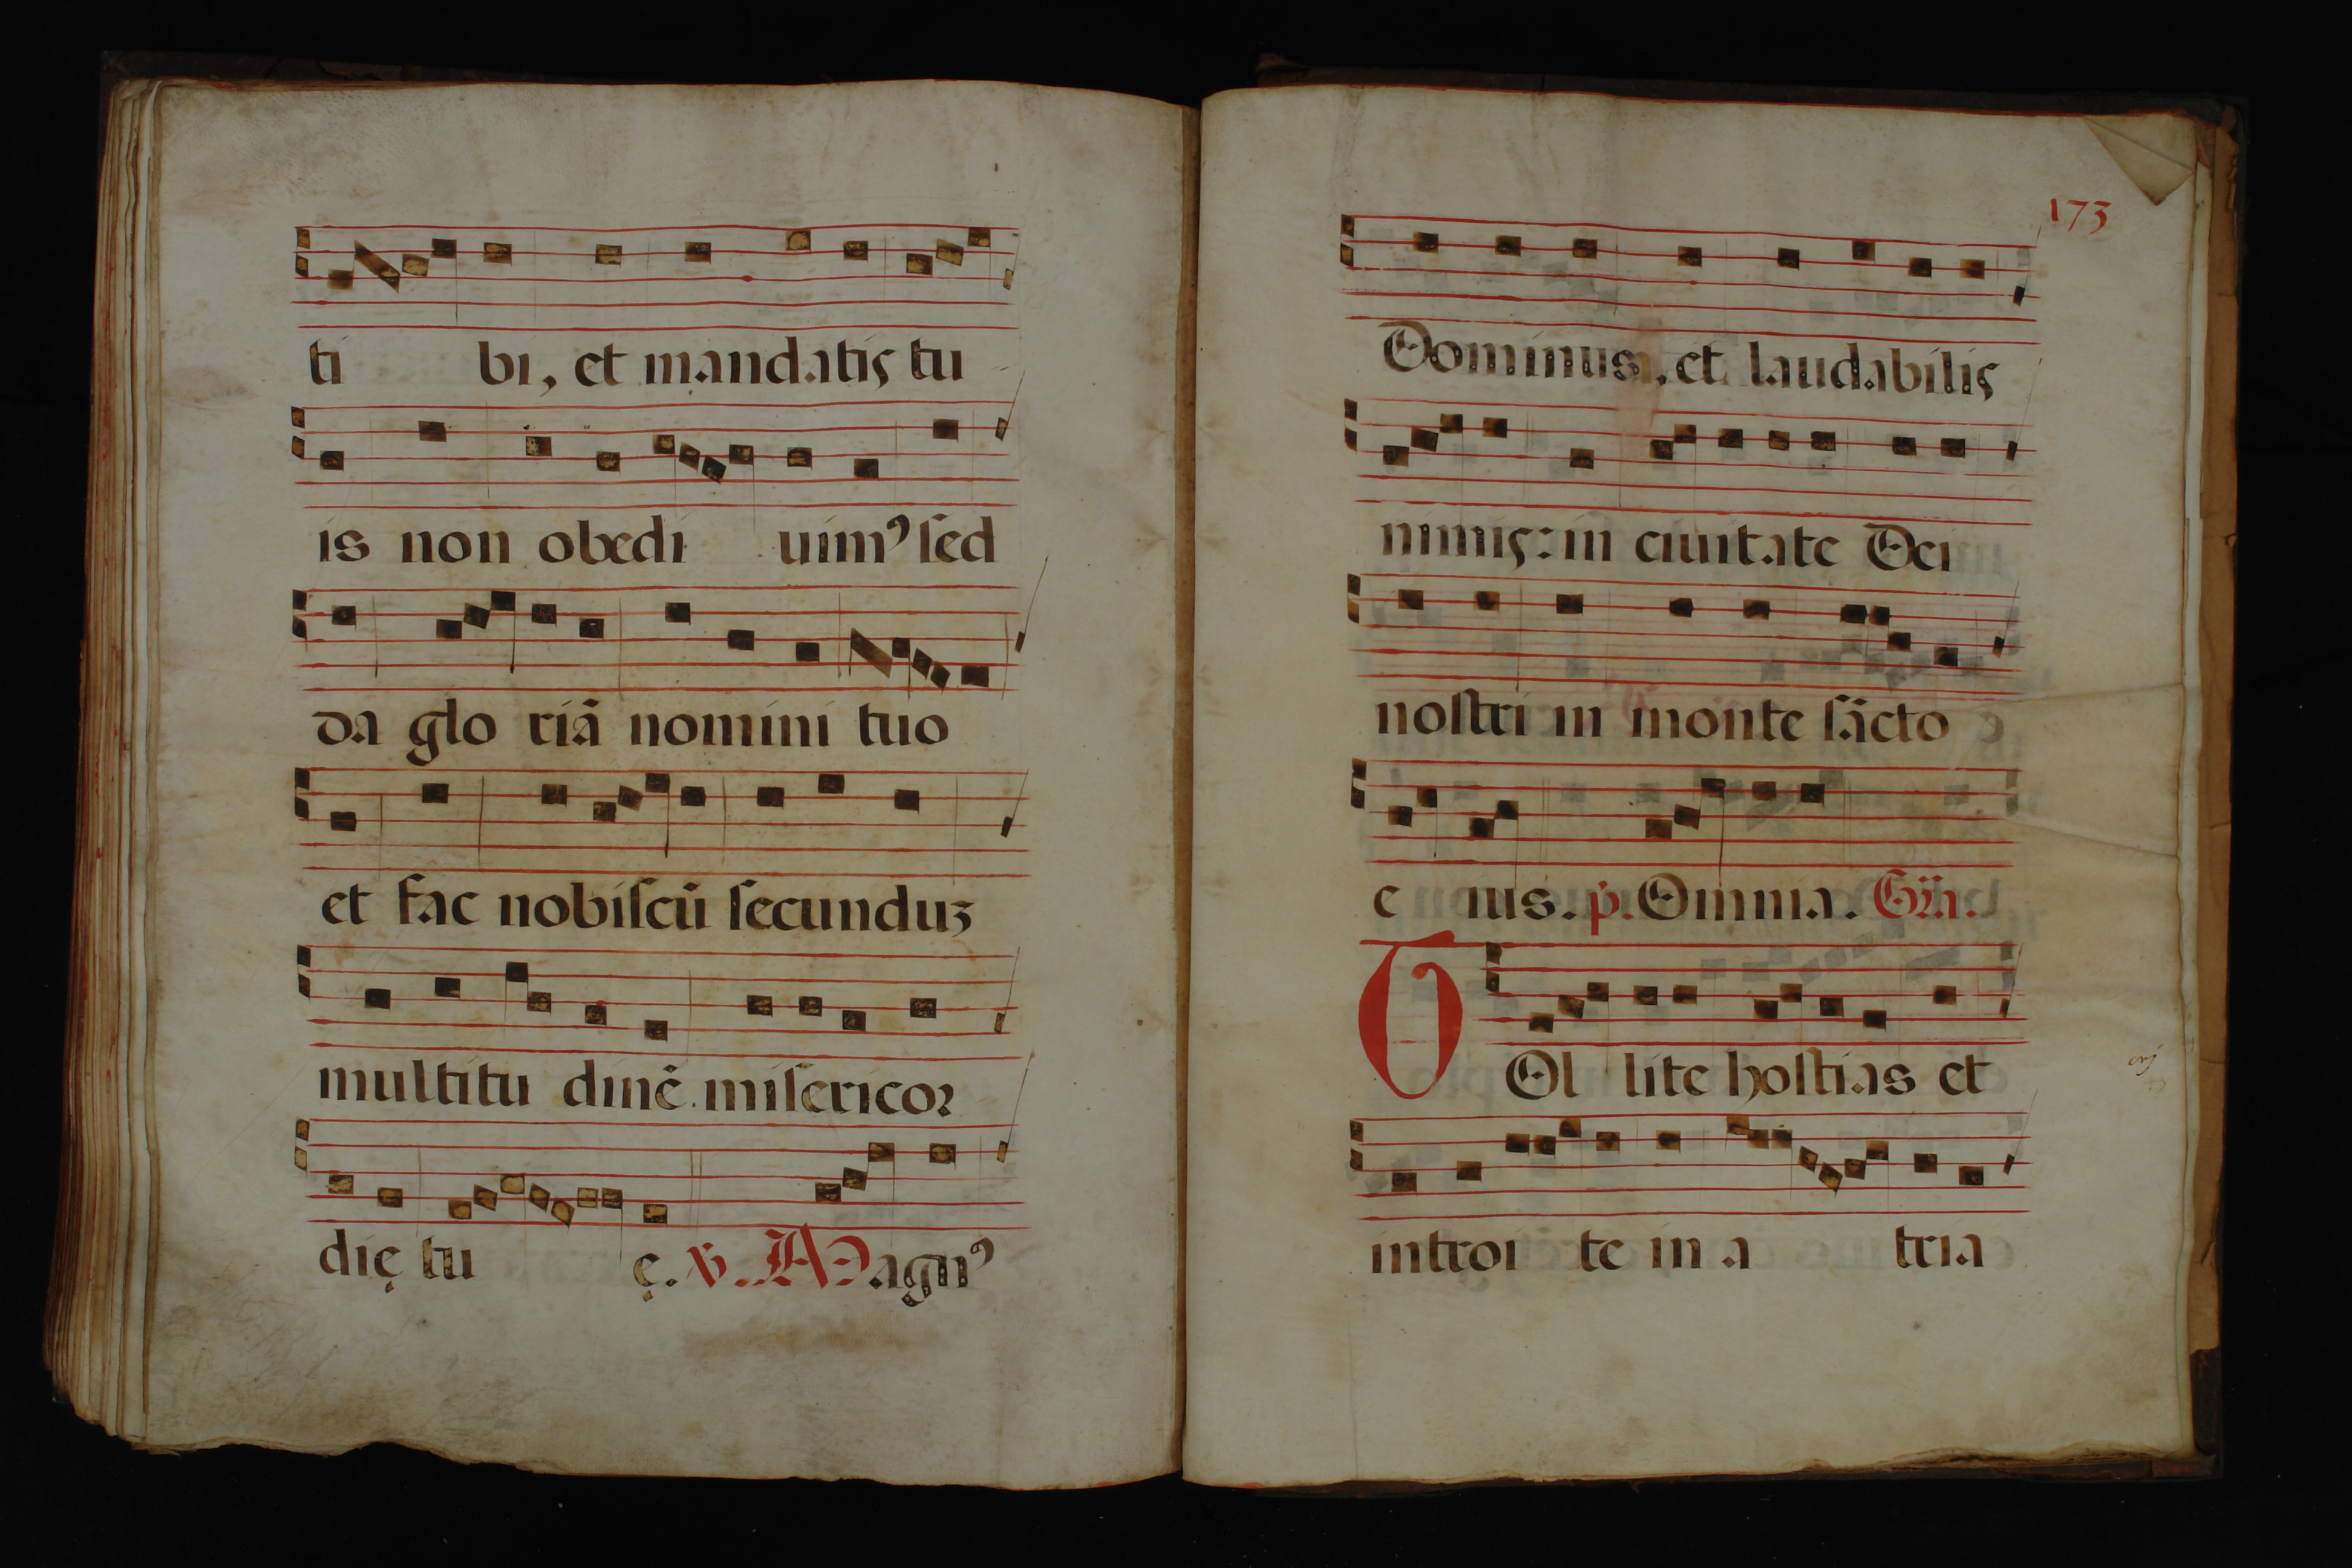 ti bi, et mandatis tu
is non obedi uimꝰ sed
da glo riã nomini tuo
et fac nobiscũ secunduʒ
multitu dinẽ misericor
dię tu ę. ℣. Magnꝰ
173
Dominus, et laudabilis
nimis: in ciuitate Dei
nostri in monte sãcto
e ius. p̃. Omnia. Gr̃a.
TOl lite hostias et
introi te in a tria